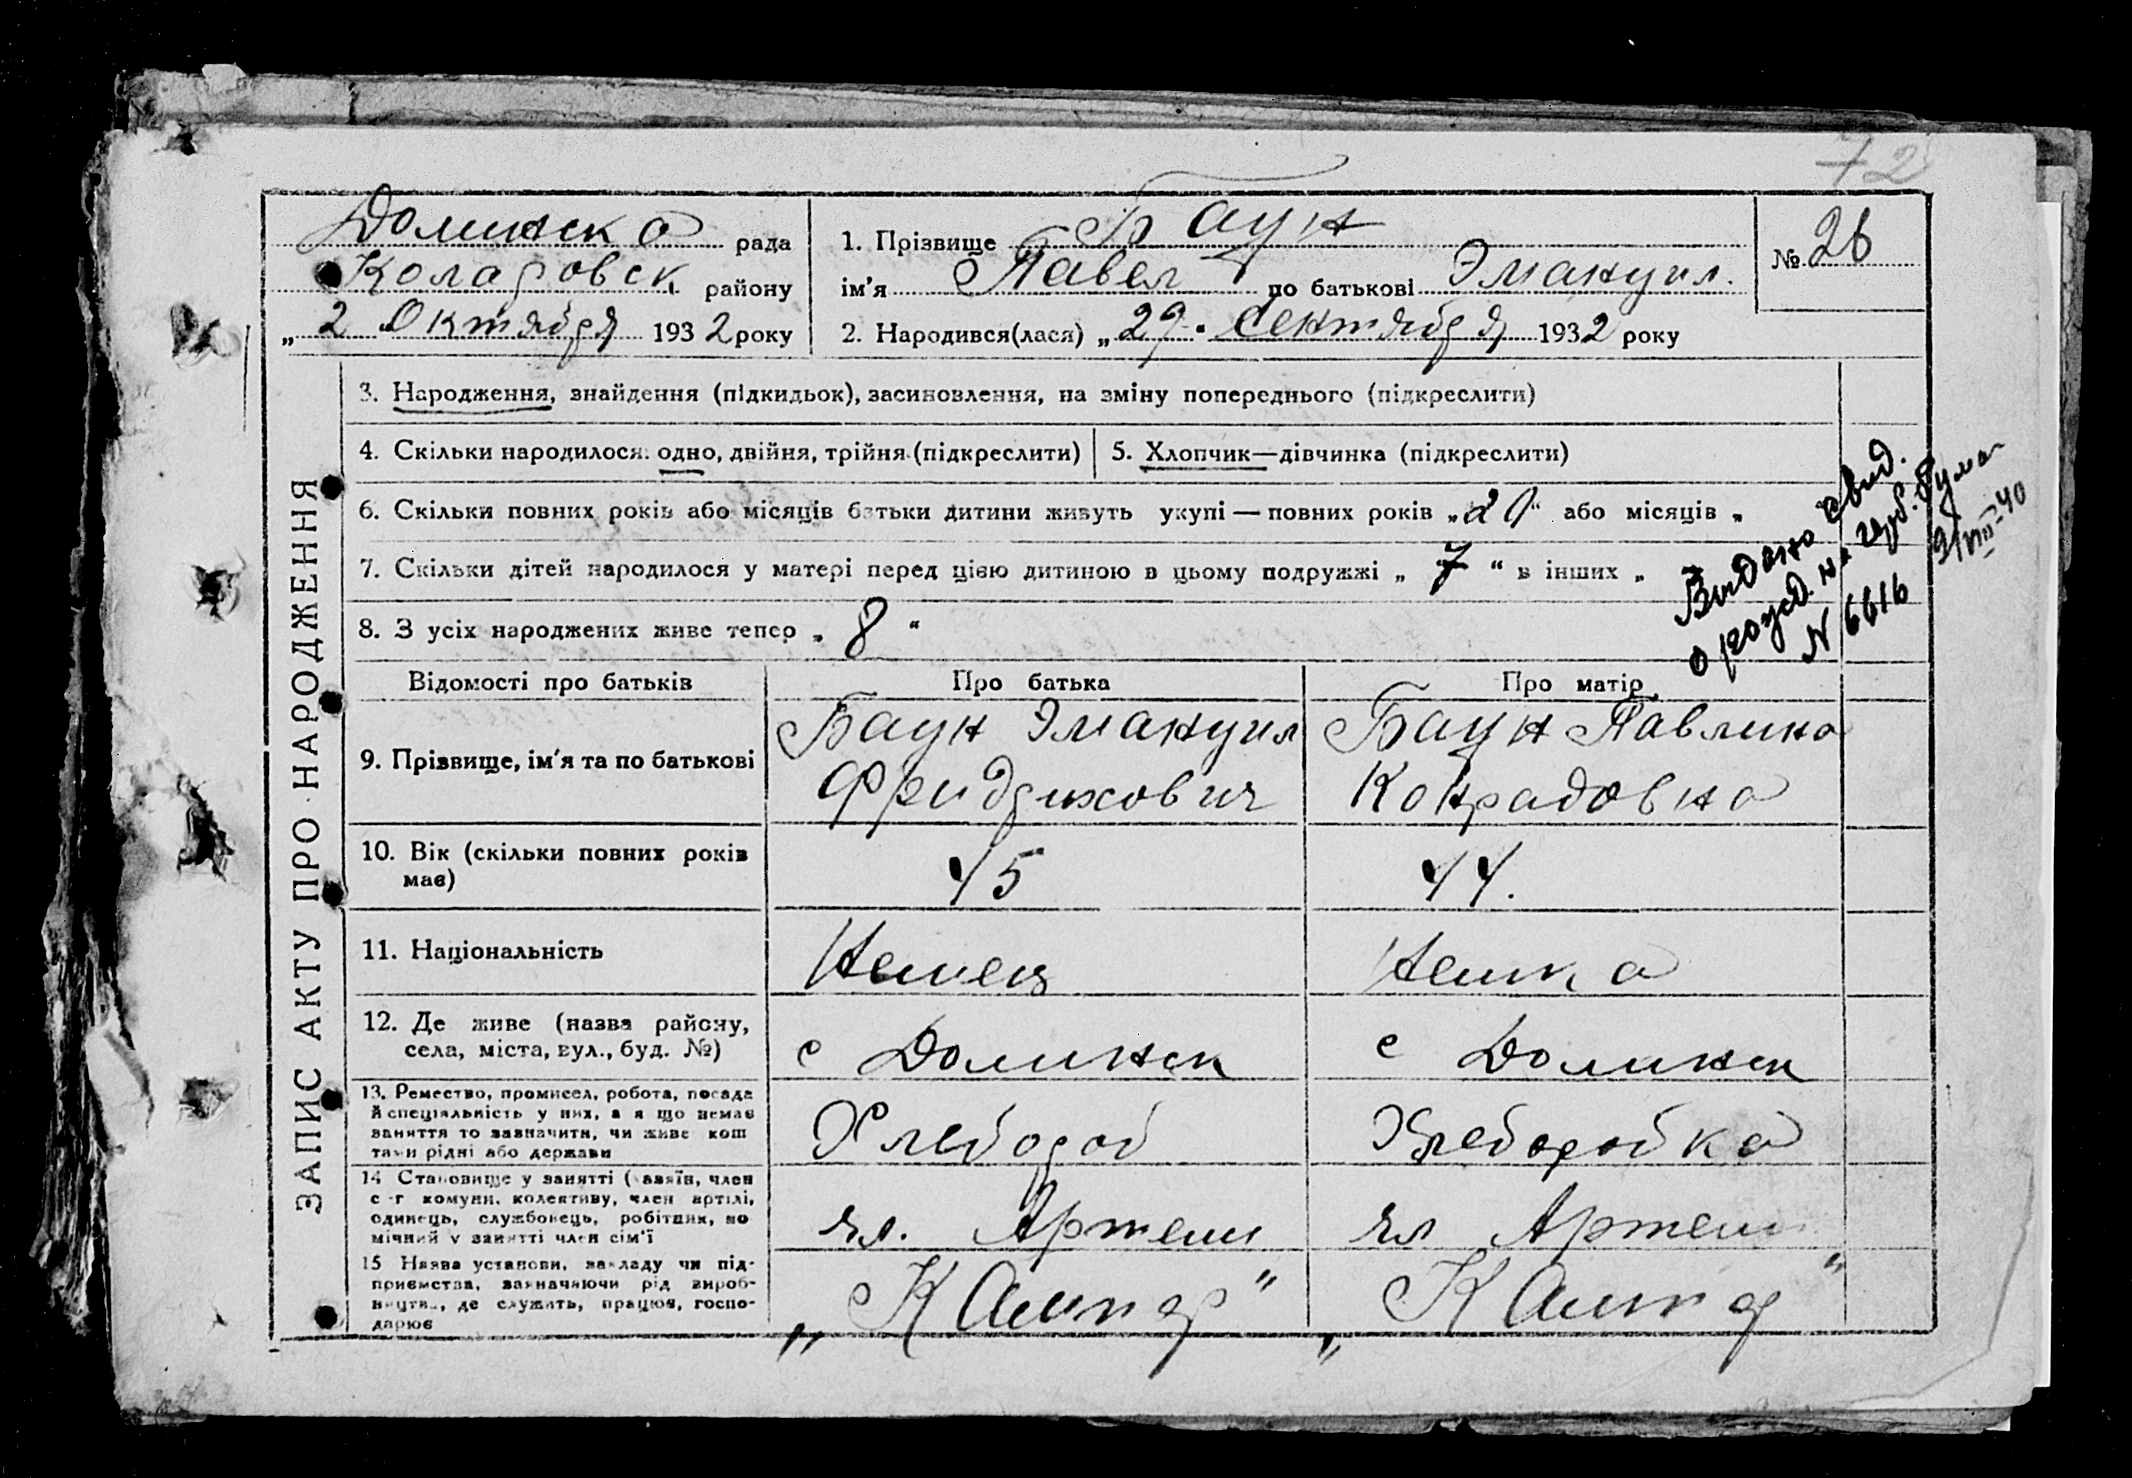 72
Долинска рада
Коларовск району
„ 2 Октября 1932 року
1. Прізвище Баун
ім'я Павел по батькові Эмануил.
№ 26
2. Народився(лася) „ 29 " Сентября 1932 року
ЗАПИС АКТУ ПРО НАРОДЖЕННЯ
3. Народження, знайдення (підкидьок), засиновлення, на зміну попереднього (підкреслити)
4. Скільки народилося: одно, двійня, трійня (підкреслити)
5. Хлопчик—дівчинка (підкреслити)
6. Скільки повних років або місяців батьки дитини живуть укупі — повних років „ 20 " або місяців „
7. Скільки дітей народилося у матері перед цією дитиною в цьому подружжі „ 7 " в інших „
8. З усіх народжених живе тепер „ 8 "
Видано свид.
о рожд. на
№ 6616
9/VIII-40
Відомості про батьків
Про батька
Про матір
9. Прізвище, ім'я та по батькові
Баун Эмануил
Фридрихович
Баун Павлина
Конрадовна
10. Вік (скільки повних років
має)
45
44.
11. Національність
Немец
Немка
12. Де живе (назва району,
села, міста, вул., буд. №)
с Долинск
с Долинск
13. Ремество, промисел, робота, посада
й спеціяльність у них, а я що немає
заняття то зазначити, чи живе кош
тами рідні або держави
Хлебороб
Хлеборобка
14 Становище у занятті (хазяїн, член
с-г комуни, колективу, член артілі,
одинець, службовець, робітник, по
мічний у занятті член сім'ї
чл. Артели
чл Артели
15 Назва установи, закладу чи під-
приємства, зазначаючи рід вироб-
ництва, де служить, працює, госпо-
дарює